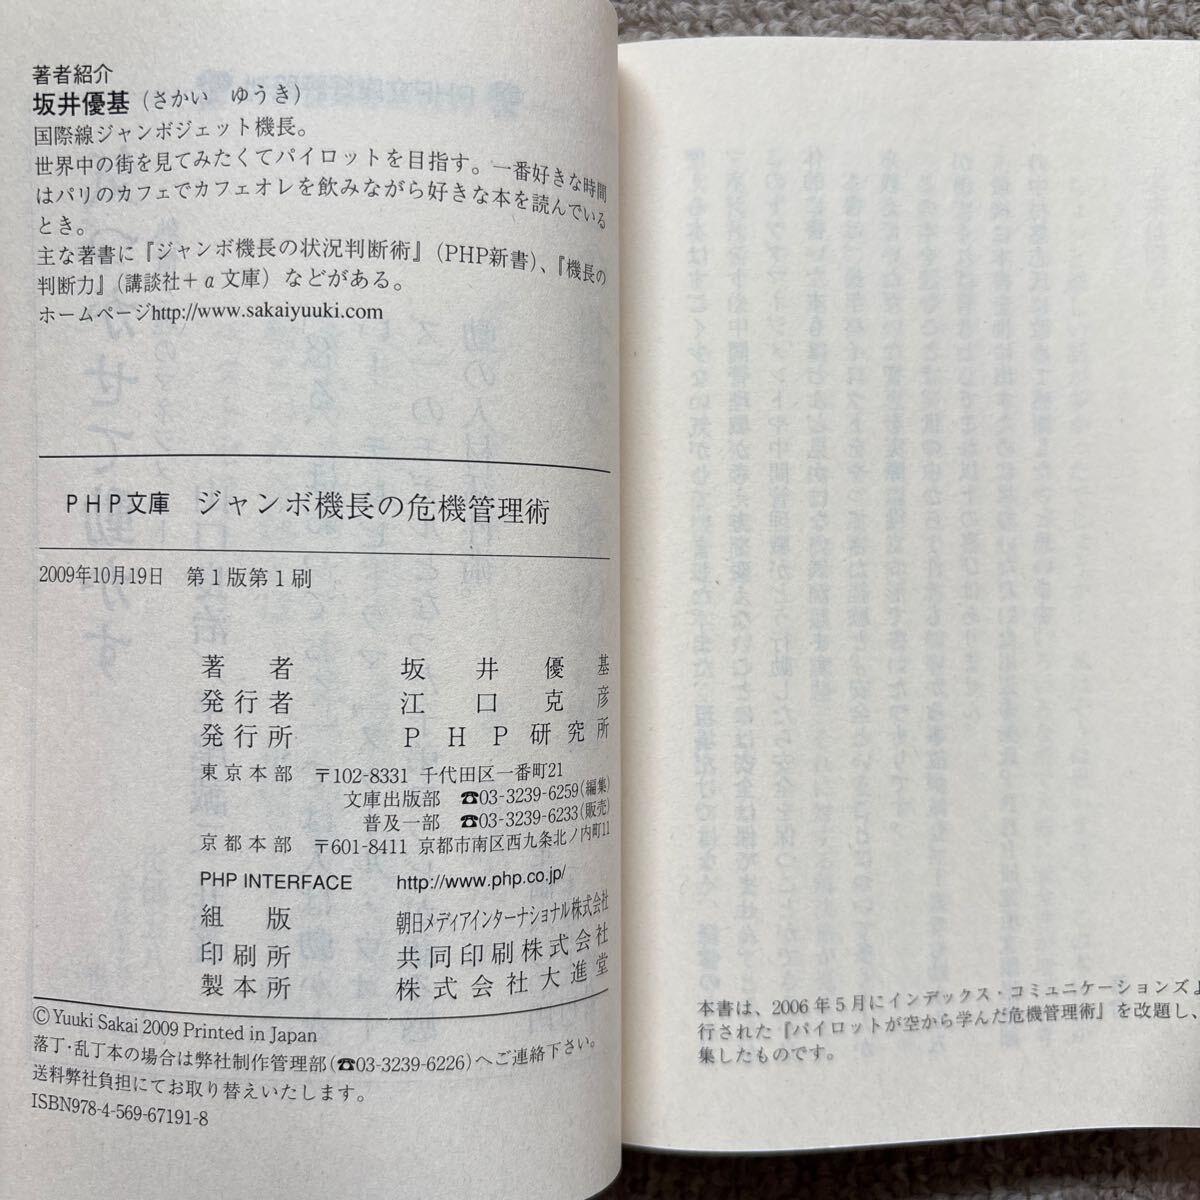 著者紹介
坂井優基（さかい　ゆうき）
国際線ジャンボジェット機長。
世界中の街を見てみたくてパイロットを目指す。一番好きな時間
はパリのカフェでカフェオレを飲みながら好きな本を読んでいる
とき。
主な著書に『ジャンボ機長の状況判断術』（PHP新書）、『機長の
判断力』（講談社＋α文庫）などがある。
ホームページhttp://www.sakaiyuuki.com
PHP文庫　ジャンボ機長の危機管理術
2009年10月19日　第1版第1刷
著者　坂井優基
発行者　江口克彦
発行所　PHP研究所
東京本部　〒102-8331 千代田区一番町21
文庫出版部　☎03-3239-6259(編集)
普及一部　☎03-3239-6233(販売)
京都本部　〒601-8411 京都市南区西九条北ノ内町11
PHP INTERFACE　http://www.php.co.jp/
組版　朝日メディアインターナショナル株式会社
印刷所　共同印刷株式会社
製本所　株式会社大進堂
© Yuuki Sakai 2009 Printed in Japan
落丁・乱丁本の場合は弊社制作管理部(☎03-3239-6226)へご連絡下さい。
送料弊社負担にてお取り替えいたします。
ISBN978-4-569-67191-8
本書は、2006年5月にインデックス・コミュニケーションズよ
行された『パイロットが空から学んだ危機管理術』を改題し、
集したものです。